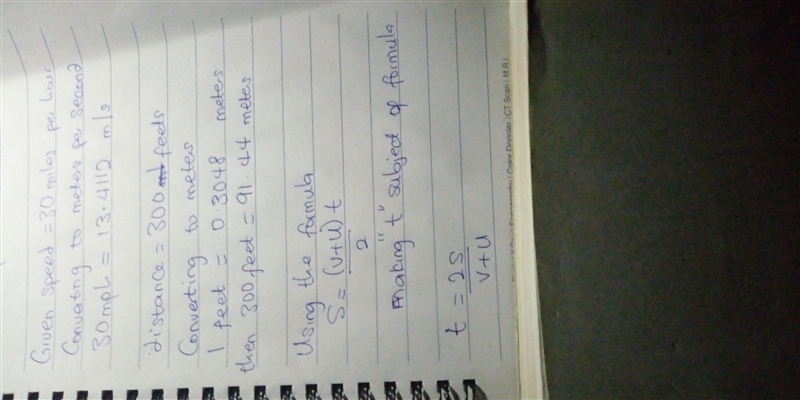 Given speed = 30 miles per hour
Converting to meters per second
30 mph = 13.4112 m/s
distance = 300 feets
Converting to meters
1 feet = 0.3048 meters
then 300 feet = 91.44 meters
Using the formula
S = (v+u) t
2
making "t" subject of formula
t = 2S
v+u
Color Doppler | CT Scan | M.R.I